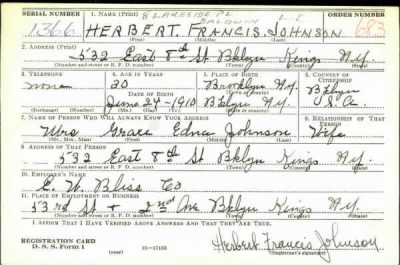 SERIAL NUMBER 1. NAME (Print) 8 LAKESIDE PL BALDWIN L-I ORDER NUMBER
1366 HERBERT FRANCIS JOHNSON 683
(First) (Middle) (Last)
2. ADDRESS (Print)
532 East 8th St Bklyn Kings N.Y.
(Number and street or R. F. D. number) (Town) (County) (State)
3. TELEPHONE 4. AGE IN YEARS 5. PLACE OF BIRTH 6. COUNTRY OF CITIZENSHIP
none 30 Brooklyn N.Y. Bklyn
DATE OF BIRTH
June 24 - 1910 Bklyn N.Y. U.S.A.
(Exchange) (Number) (Mo.) (Day) (Yr.) (State or country)
7. NAME OF PERSON WHO WILL ALWAYS KNOW YOUR ADDRESS 8. RELATIONSHIP OF THAT PERSON
Mrs Grace Edna Johnson Wife
(Mr., Mrs., Miss) (First) (Middle) (Last)
9. ADDRESS OF THAT PERSON
532 East 8th St Bklyn Kings N.Y.
(Number and street or R. F. D. number) (Town) (County) (State)
10. EMPLOYER'S NAME
E. W. Bliss Co
11. PLACE OF EMPLOYMENT OR BUSINESS
53rd St + 2nd Ave Bklyn Kings N.Y.
(Number and street or R. F. D. number) (Town) (County) (State)
I AFFIRM THAT I HAVE VERIFIED ABOVE ANSWERS AND THAT THEY ARE TRUE.
REGISTRATION CARD
D. S. S. Form 1 (over) 16—17105 Herbert Francis Johnson
(Registrant's signature)